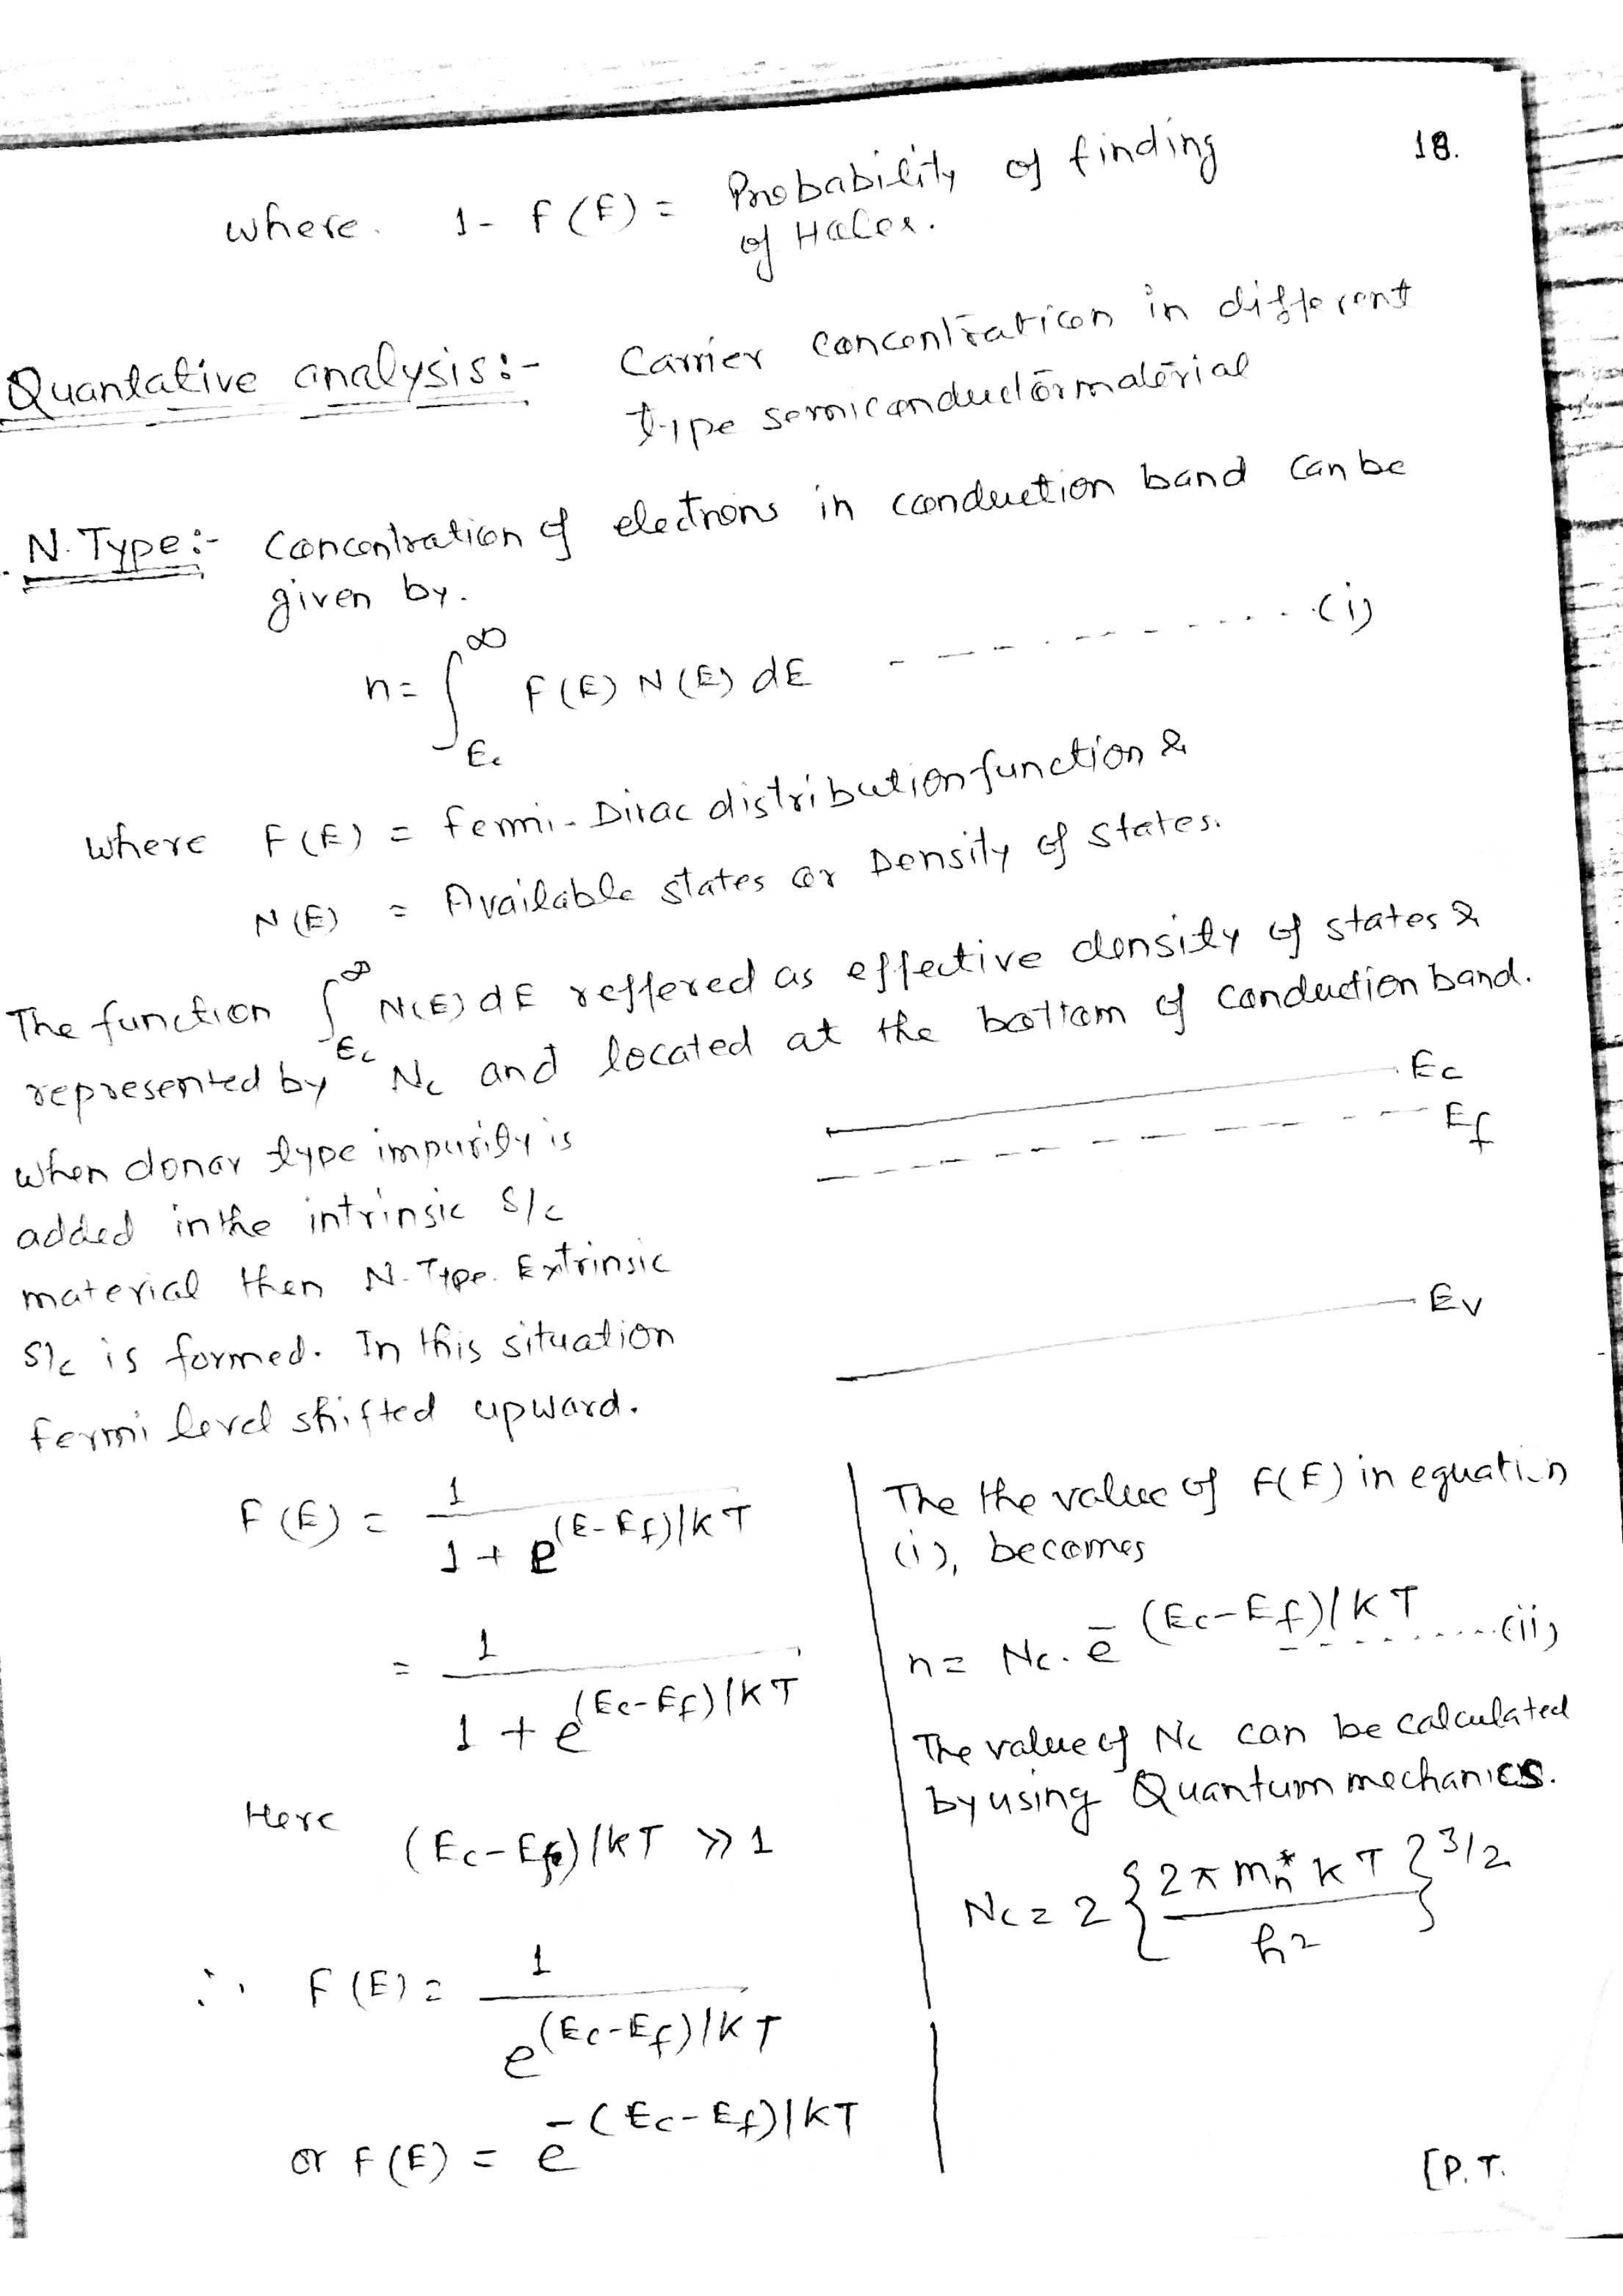 18.
where. 1 - F(E) = Probability of finding
of Holes.
Quantative analysis:- Carrier Concentration in different
type semiconductor material
N. Type:- Concentration of electrons in conduction band can be
given by.
n = ∫_{Ec}^{∞} F(E) N(E) dE ------------(i)
where F(E) = Fermi-Dirac distribution function &
N(E) = Available states or Density of states.
The function ∫_{Ec}^{∞} N(E) dE reffered as effective density of states &
represented by Nc and located at the bottom of conduction band.
Ec
Ef
Ev
when donar type impurity is
added in the intrinsic S/c
material then N-Type. Extrinsic
S/c is formed. In this situation
fermi level shifted upward.
F(E) = 1 / (1 + e^{(E-Ef)/KT})
= 1 / (1 + e^{(Ec-Ef)/KT})
Here
(Ec-Ef)/KT >> 1
∴ F(E) = 1 / e^{(Ec-Ef)/KT}
or F(E) = e^{-(Ec-Ef)/KT}
The the value of F(E) in equation
(i), becomes
n = Nc. e^{-(Ec-Ef)/KT} ---------(ii)
The value of Nc can be calculated
by using Quantum mechanics.
Nc = 2 {2π m*n KT / h²}^{3/2}
[P.T.